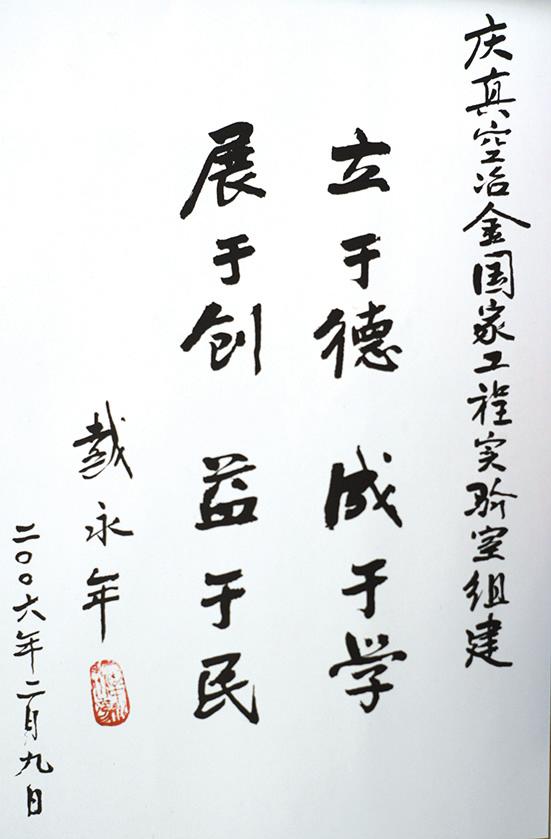 庆真空冶金国家工程实验室组建
立于德 成于学
展于创 益于民
戴永年
二〇〇六年二月九日